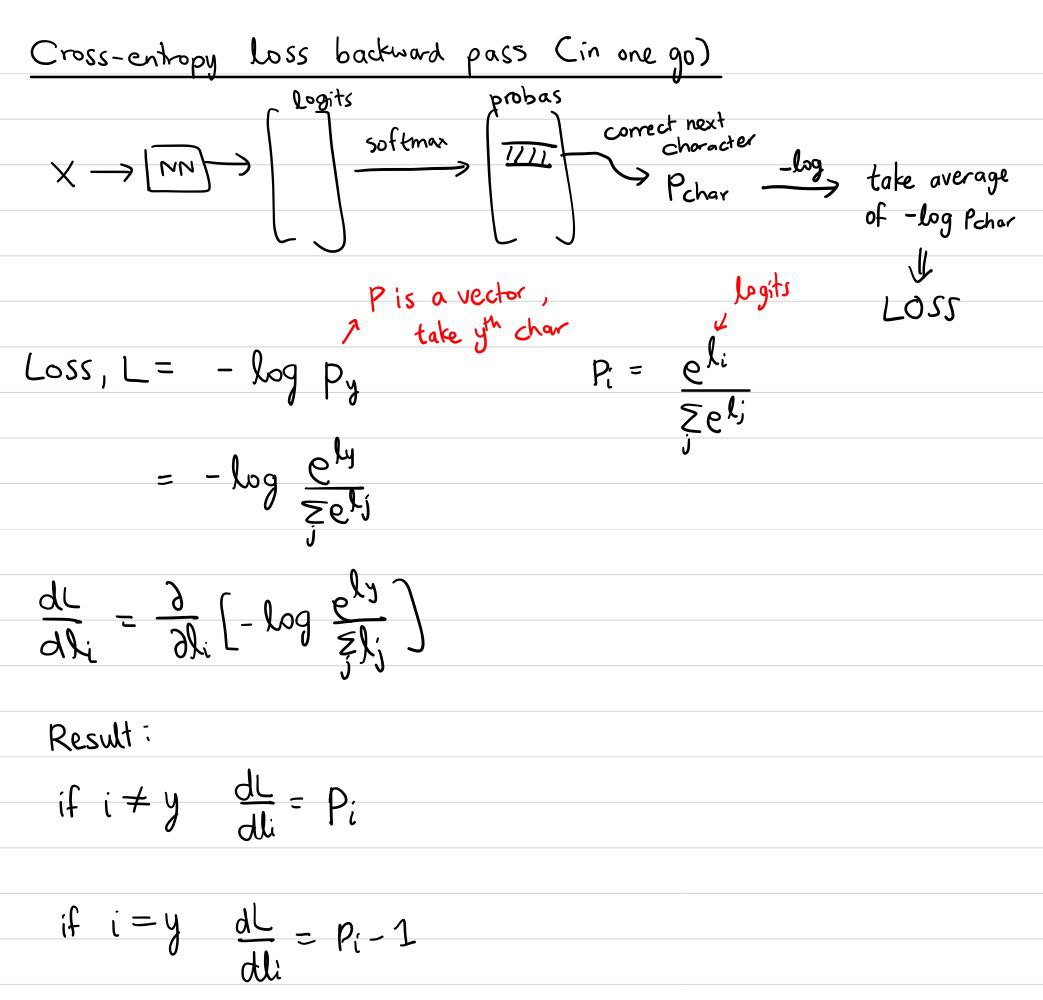 Cross-entropy loss backward pass (in one go)
logits
probas
X → NN → softmax → correct next
character
Pchar
-log
take average
of -log Pchar
⇓
LOSS
P is a vector,
take yth char
logits
Loss, L = - log Py
Pi = e^li / Σj e^lj
= - log e^ly / Σj e^lj
dL/dli = ∂/∂li [- log e^ly / Σj lj]
Result:
if i ≠ y dL/dli = Pi
if i = y dL/dli = Pi - 1